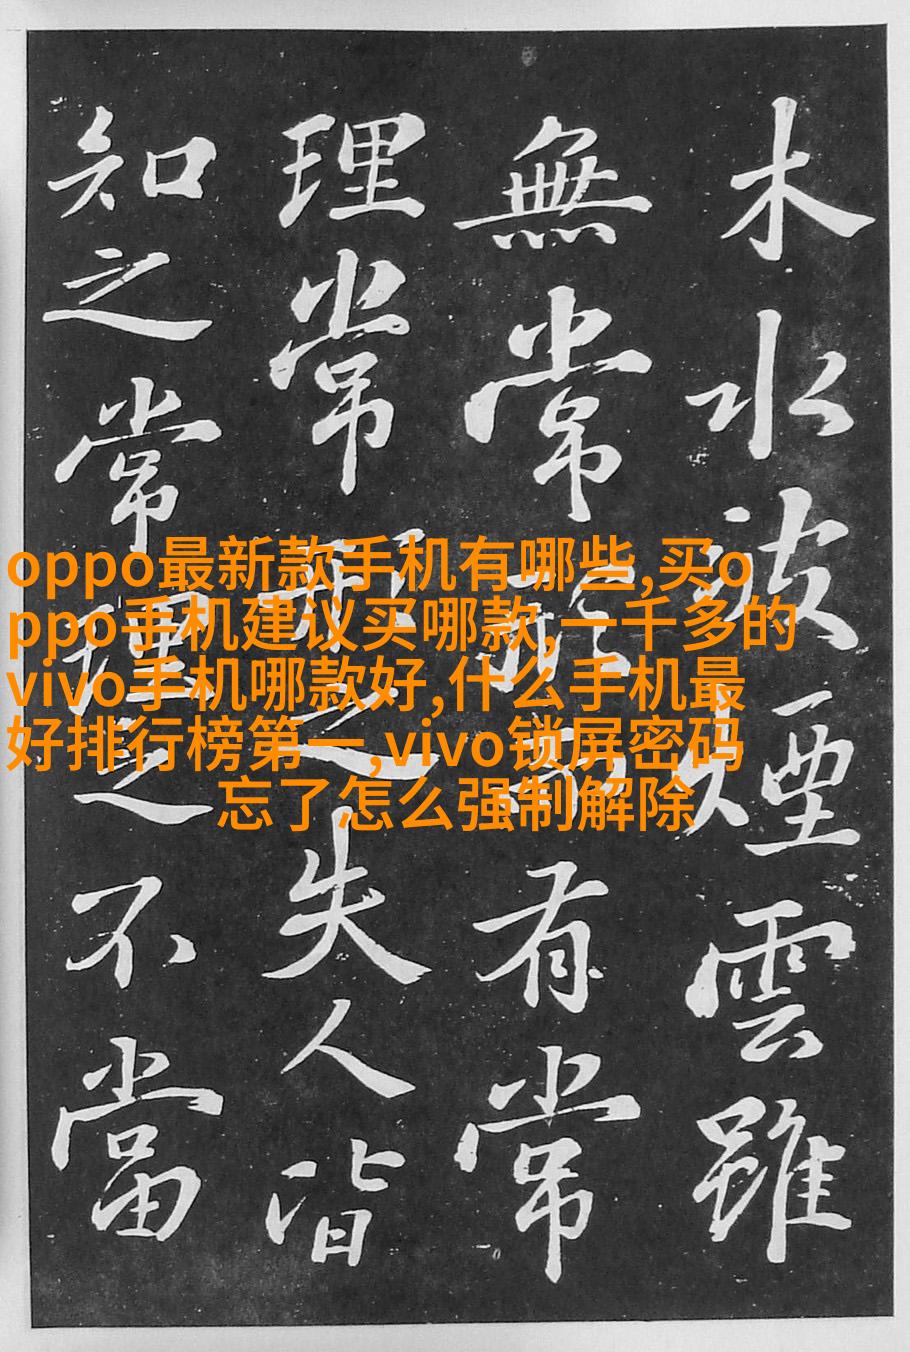 木水波煙雲雖
無常形而有常
理常形之失人皆
知之常理之不當
oppo最新款手机有哪些,买o
ppo手机建议买哪款,一千多的
vivo手机哪款好,什么手机最
好排行榜第一,vivo锁屏密码
忘了怎么强制解除